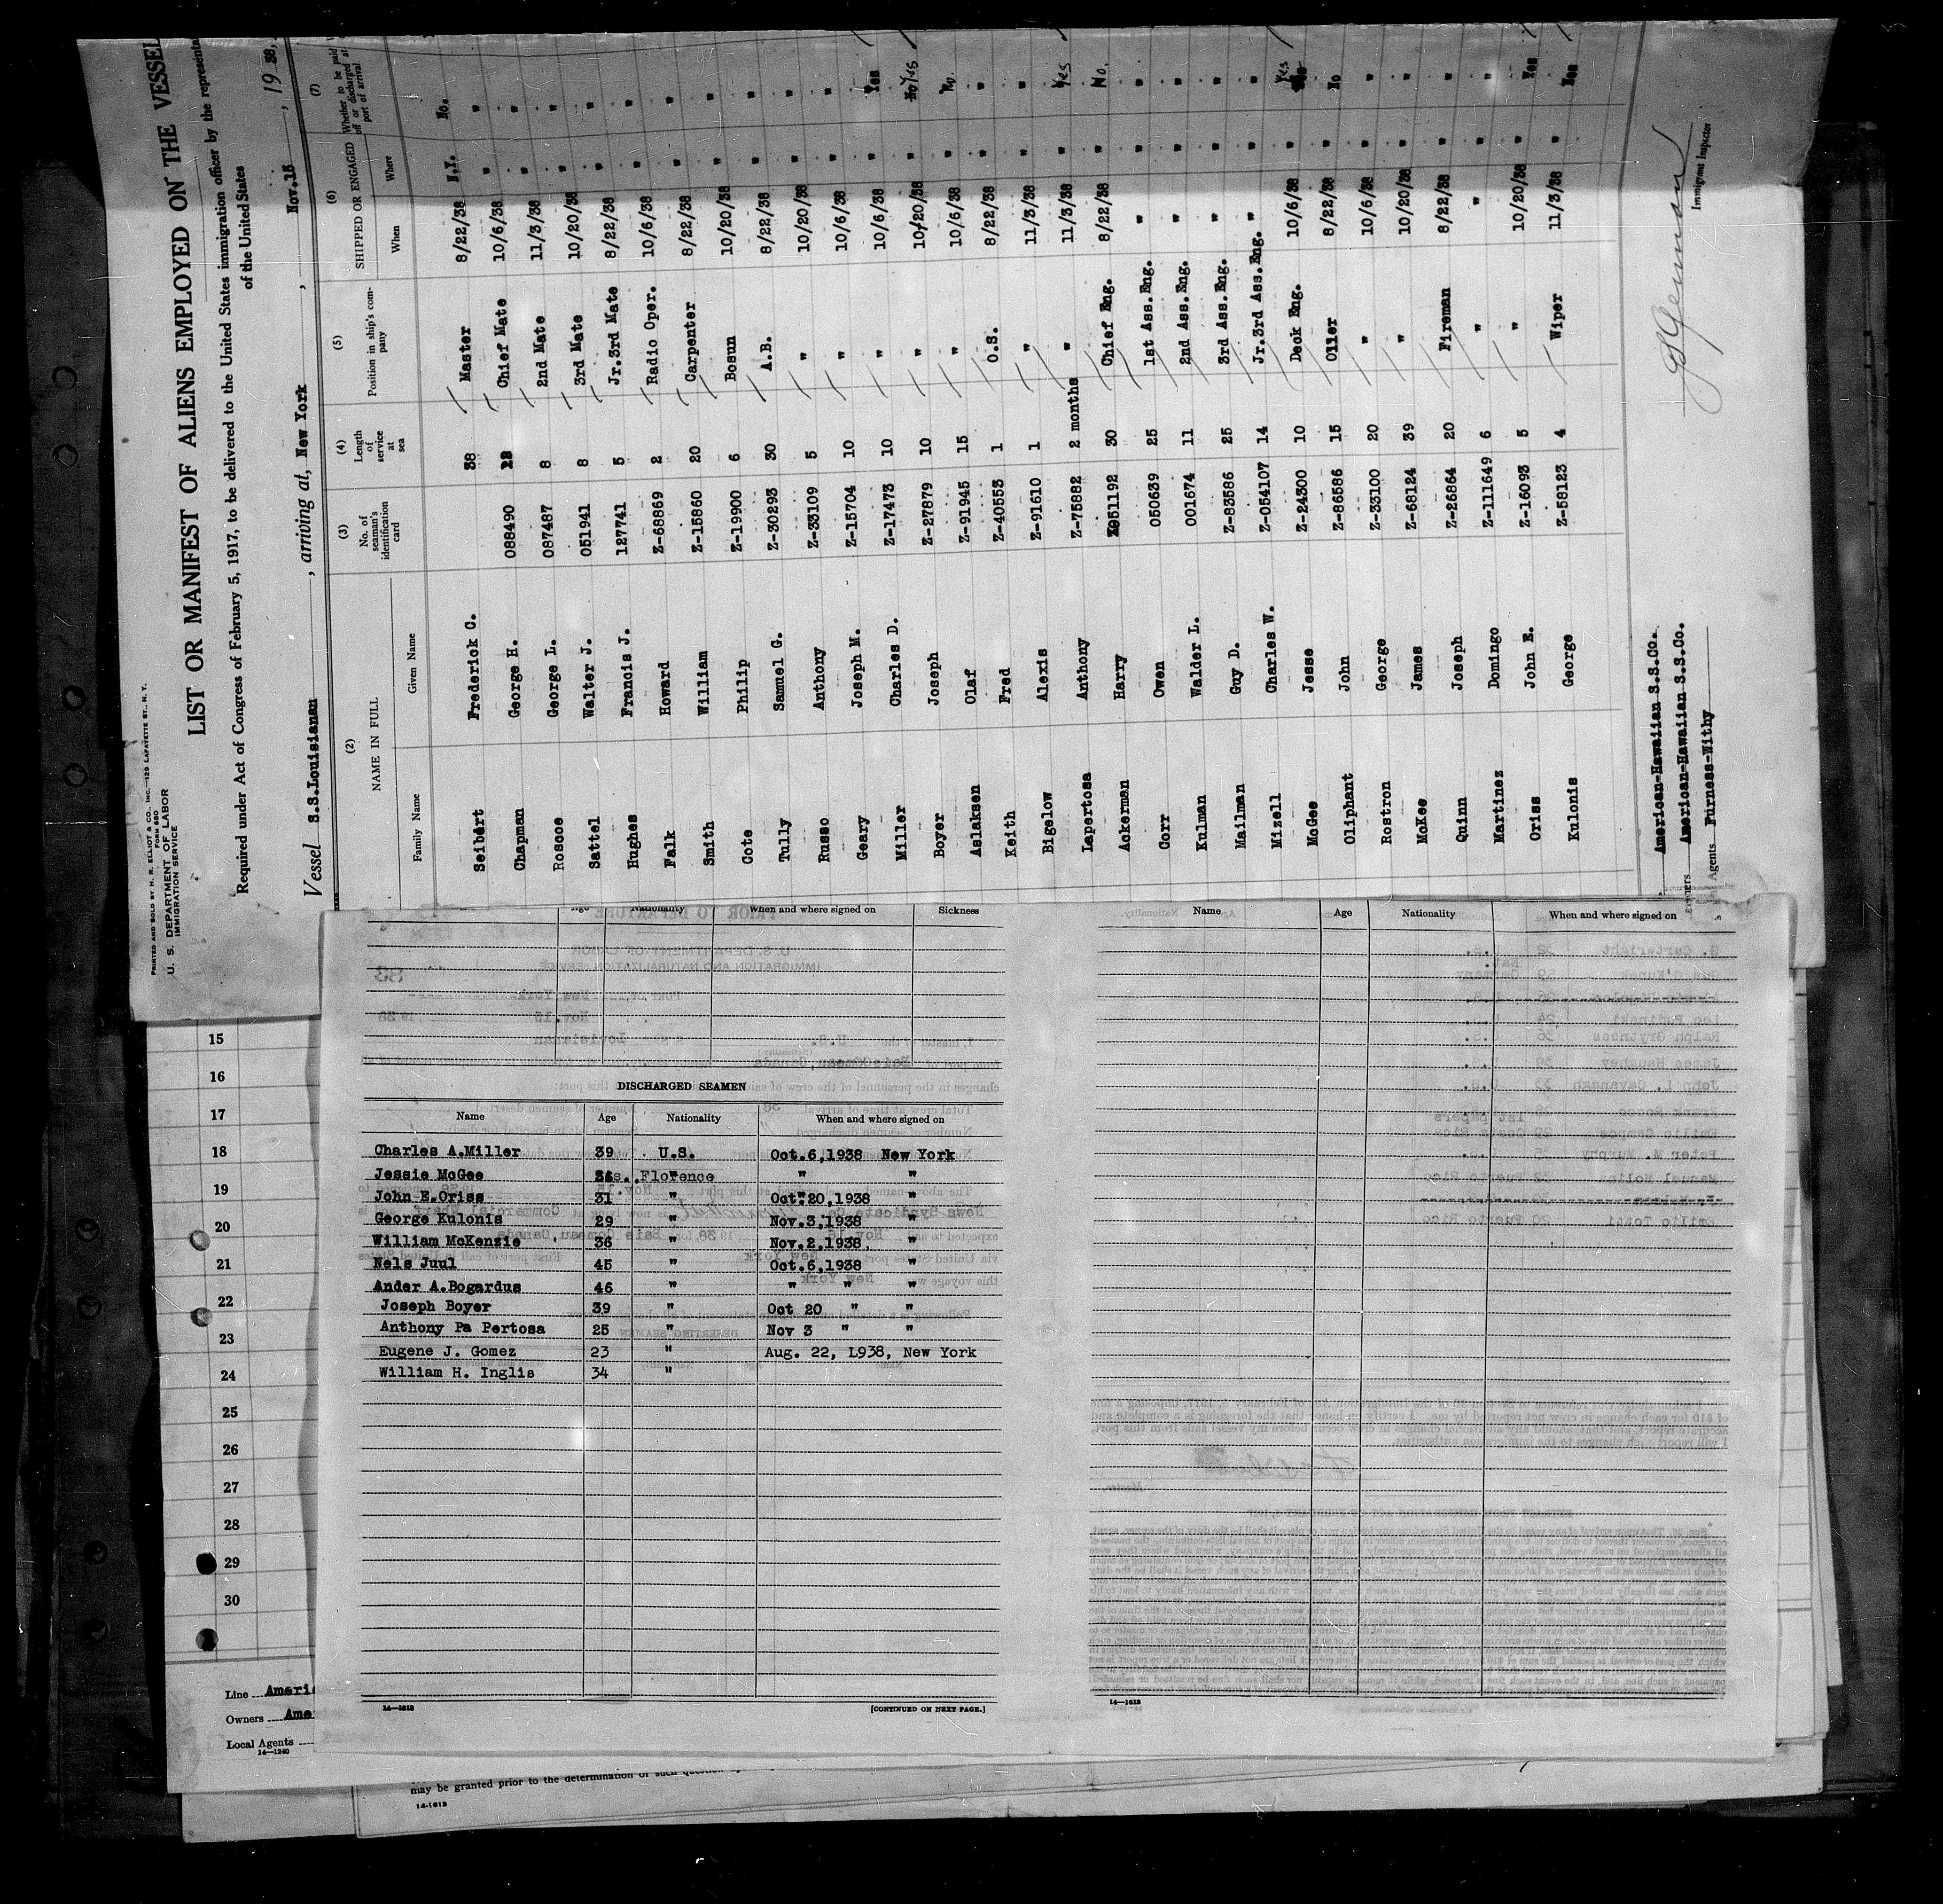 PRINTED AND SOLD BY H. R. ELLIOT & CO., INC.—129 LAFAYETTE ST., N.Y.
FORM 680
U. S. DEPARTMENT OF LABOR
IMMIGRATION SERVICE
LIST OR MANIFEST OF ALIENS EMPLOYED ON THE VESSEL
Required under Act of Congress of February 5, 1917, to be delivered to the United States immigration officer by the representa
of the United States
Vessel S.S.Louisianan, arriving at, New York, Nov.15, 19 38,
(2) (3) (4) (5) (6) (7)
NAME IN FULL No. of seaman's identification card Length of service at sea Position in ship's company SHIPPED OR ENGAGED Whether to be paid off or discharged at port of arrival
Family Name Given Name When Where
Seibert Frederick C. 38 Master 8/22/38 N.Y. No.
Chapman George H. 088490 Chief Mate 10/6/38 " "
Roscoe George L. 087487 8 2nd Mate 11/3/38 " "
Sattel Walter J. 051941 8 3rd Mate 10/20/38 " "
Hughes Francis J. 127741 5 Jr.3rd Mate 8/22/38 " "
Falk Howard Z-68869 2 Radio Oper. 10/6/38 " "
Smith William Z-15860 20 Carpenter 8/22/38 " "
Cote Philip Z-19900 6 Bosun 10/20/38 " "
Tully Samuel G. Z-30293 30 A.B. 8/22/38 " "
Russo Anthony Z-33109 5 " 10/20/38 " "
Geary Joseph M. Z-15704 10 " 10/6/38 " "
Miller Charles D. Z-17473 10 " 10/6/38 " Yes
Boyer Joseph Z-27879 10 " 10/20/38 " No Yes
Aslaksen Olaf Z-91945 15 " 10/6/38 " No
Keith Fred Z-40553 1 O.S. 8/22/38 " "
Bigelow Alexis Z-91610 1 " 11/3/38 " "
Lapertosa Anthony Z-75882 2 months " 11/3/38 " Yes
Ackerman Harry 051192 30 Chief Eng. 8/22/38 " No.
Corr Owen 050639 25 1st Ass.Eng. " " "
Kulman Walder L. 001674 11 2nd Ass.Eng. " " "
Mailman Guy D. Z-83586 25 3rd Ass.Eng. " " "
Mizell Charles W. Z-054107 14 Jr.3rd Ass.Eng. " " "
McGee Jesse Z-24300 10 Deck Eng. 10/6/38 " Yes
Oliphant John Z-86586 15 Oiler 8/22/38 " No
Rostron George Z-33100 20 " 10/6/38 " "
McKee James Z-68124 39 " 10/20/38 " "
Quinn Joseph Z-26864 20 Fireman 8/22/38 " "
Martinez Domingo Z-111649 6 " " " "
Oriss John E. Z-16093 5 " 10/20/38 " Yes
Kulonis George Z-58123 4 Wiper 11/3/38 " Yes
American-Hawaiian S.S.Co.
American-Hawaiian S.S.Co.
Agents Furness-Withy
Immigrant Inspector
Age Nationality When and where signed on Sickness
DISCHARGED SEAMEN
Name Age Nationality When and where signed on
Charles A.Miller 39 U.S. Oct.6,1938 New York
Jessie McGee " " "
John E.Oriss 31 " Oct.20,1938 "
George Kulonis 29 " Nov.3,1938 "
William McKenzie 36 " Nov.2,1938, "
Nels Juul 45 " Oct.6,1938 "
Ander A.Bogardus 46 " " " "
Joseph Boyer 39 " Oct 20 " "
Anthony Pa Pertosa 25 " Nov 3 " "
Eugene J. Gomez 23 " Aug. 22, L938, New York
William H. Inglis 34 "
14—1613
[CONTINUED ON NEXT PAGE.]
Name Age Nationality When and where signed on
14—1613
15
16
17
18
19
20
21
22
23
24
25
26
27
28
29
30
Line Ameri
Owners Ame
Local Agents
14—1240
may be granted prior to the determination of such question
14-1613